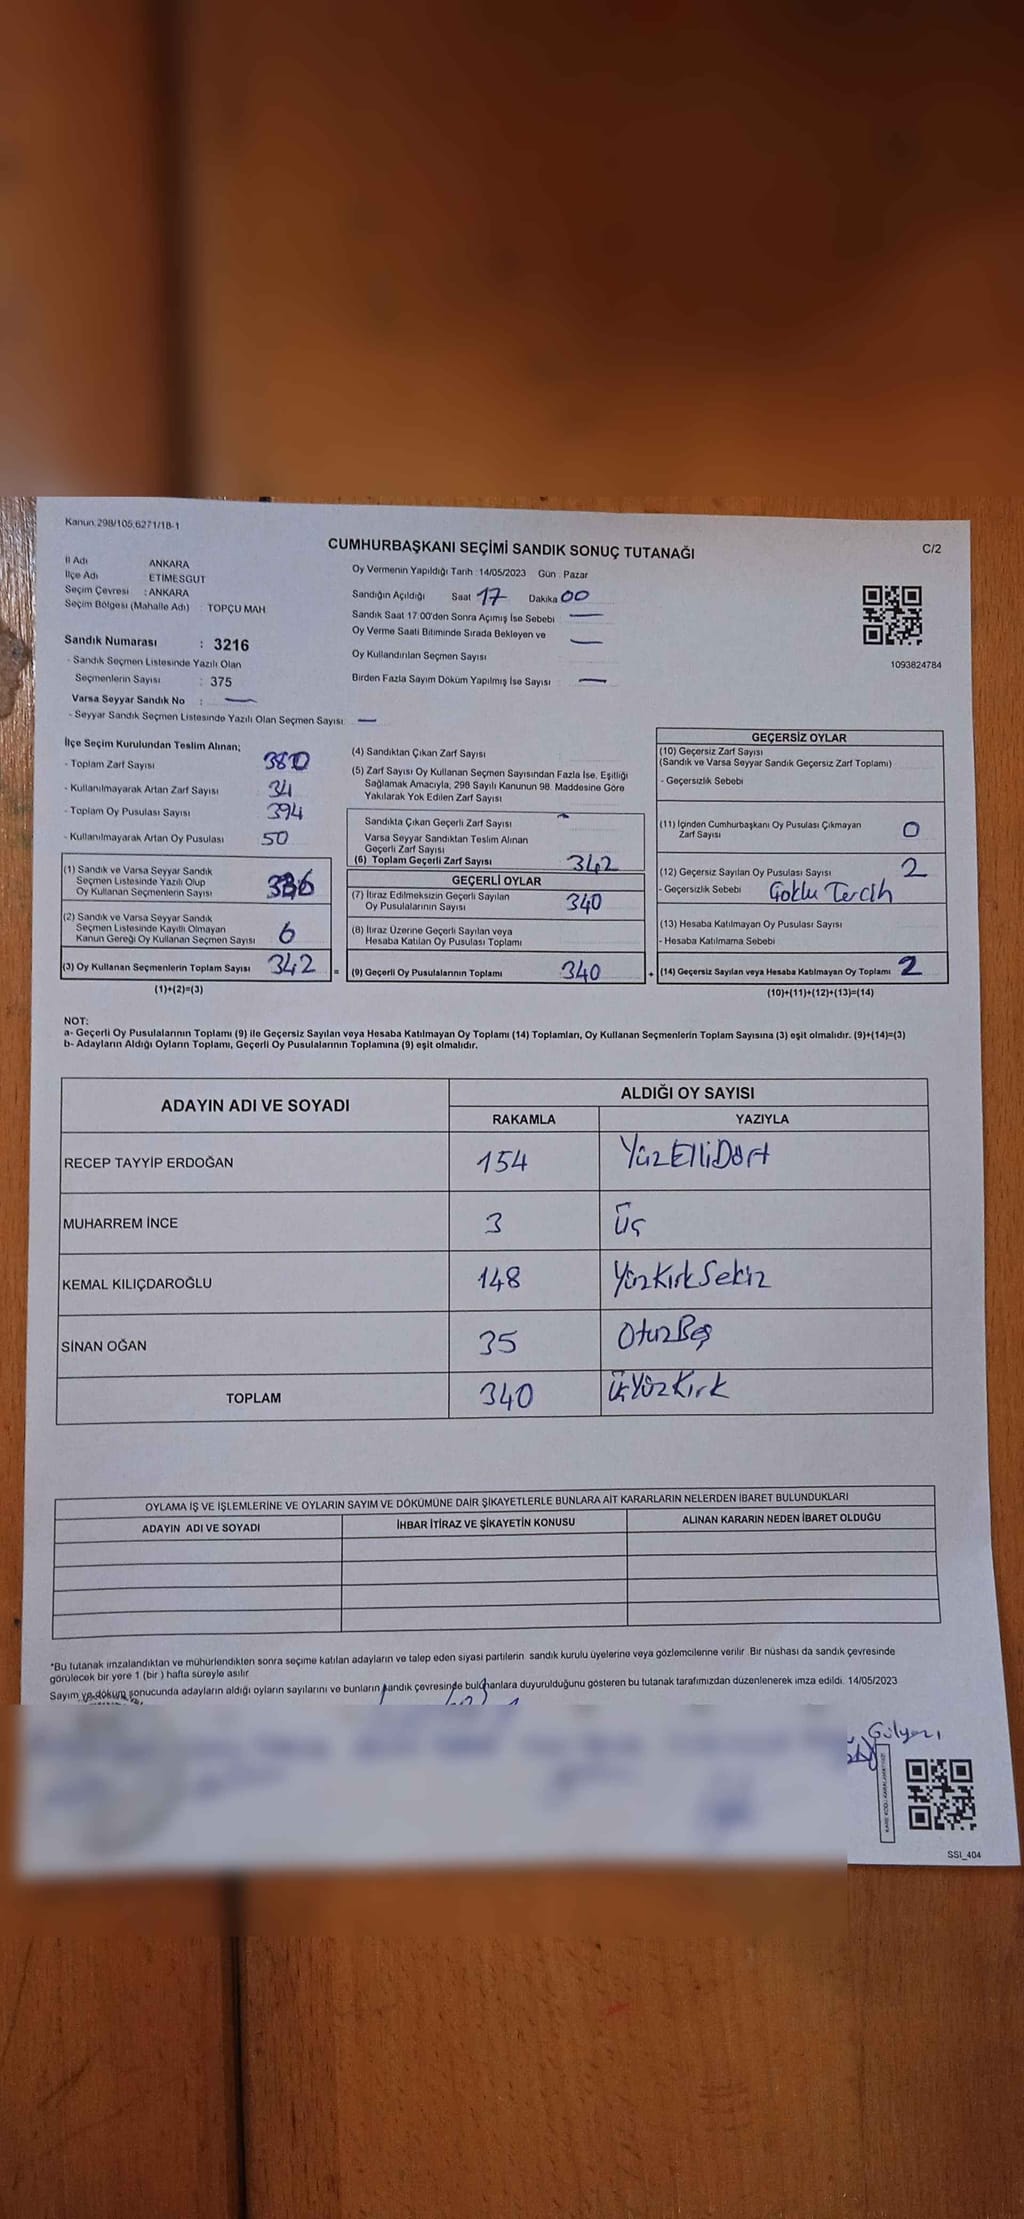 Kanun.298/105,6271/18-1
CUMHURBAŞKANI SEÇİMİ SANDIK SONUÇ TUTANAĞI
C/2
İl Adı ANKARA
İlçe Adı ETİMESGUT
Seçim Çevresi : ANKARA
Seçim Bölgesi (Mahalle Adı) : TOPÇU MAH
Sandık Numarası : 3216
- Sandık Seçmen Listesinde Yazılı Olan
Seçmenlerin Sayısı : 375
Varsa Seyyar Sandık No : —
- Seyyar Sandık Seçmen Listesinde Yazılı Olan Seçmen Sayısı: —
Oy Vermenin Yapıldığı Tarih : 14/05/2023 Gün : Pazar
Sandığın Açıldığı Saat 17 Dakika 00
Sandık Saat 17:00'den Sonra Açımış İse Sebebi —
Oy Verme Saati Bitiminde Sırada Bekleyen ve —
Oy Kullandırılan Seçmen Sayısı
Birden Fazla Sayım Döküm Yapılmış İse Sayısı —
1093824784
İlçe Seçim Kurulundan Teslim Alınan;
- Toplam Zarf Sayısı
- Kullanılmayarak Artan Zarf Sayısı 34
- Toplam Oy Pusulası Sayısı 394
- Kullanılmayarak Artan Oy Pusulası 50
(1) Sandık ve Varsa Seyyar Sandık
Seçmen Listesinde Yazılı Olup
Oy Kullanan Seçmenlerin Sayısı
(2) Sandık ve Varsa Seyyar Sandık
Seçmen Listesinde Kayıtlı Olmayan
Kanun Gereği Oy Kullanan Seçmen Sayısı 6
(3) Oy Kullanan Seçmenlerin Toplam Sayısı 342 =
(1)+(2)=(3)
(4) Sandıktan Çıkan Zarf Sayısı
(5) Zarf Sayısı Oy Kullanan Seçmen Sayısından Fazla İse, Eşitliği
Sağlamak Amacıyla, 298 Sayılı Kanunun 98. Maddesine Göre
Yakılarak Yok Edilen Zarf Sayısı
Sandıkta Çıkan Geçerli Zarf Sayısı
Varsa Seyyar Sandıktan Teslim Alınan
Geçerli Zarf Sayısı
(6) Toplam Geçerli Zarf Sayısı 342
GEÇERLİ OYLAR
(7) İtiraz Edilmeksizin Geçerli Sayılan
Oy Pusulalarının Sayısı 340
(8) İtiraz Üzerine Geçerli Sayılan veya
Hesaba Katılan Oy Pusulası Toplamı
(9) Geçerli Oy Pusulalarının Toplamı 340 +
GEÇERSİZ OYLAR
(10) Geçersiz Zarf Sayısı
(Sandık ve Varsa Seyyar Sandık Geçersiz Zarf Toplamı)
- Geçersizlik Sebebi
(11) İçinden Cumhurbaşkanı Oy Pusulası Çıkmayan
Zarf Sayısı 0
(12) Geçersiz Sayılan Oy Pusulası Sayısı 2
- Geçersizlik Sebebi Çoklu Tercih
(13) Hesaba Katılmayan Oy Pusulası Sayısı
- Hesaba Katılmama Sebebi
(14) Geçersiz Sayılan veya Hesaba Katılmayan Oy Toplamı 2
(10)+(11)+(12)+(13)=(14)
NOT:
a- Geçerli Oy Pusulalarının Toplamı (9) ile Geçersiz Sayılan veya Hesaba Katılmayan Oy Toplamı (14) Toplamları, Oy Kullanan Seçmenlerin Toplam Sayısına (3) eşit olmalıdır. (9)+(14)=(3)
b- Adayların Aldığı Oyların Toplamı, Geçerli Oy Pusulalarının Toplamına (9) eşit olmalıdır.
ADAYIN ADI VE SOYADI ALDIĞI OY SAYISI
RAKAMLA YAZIYLA
RECEP TAYYİP ERDOĞAN 154 YüzElliDört
MUHARREM İNCE 3 Üç
KEMAL KILIÇDAROĞLU 148 YüzKırkSekiz
SİNAN OĞAN 35 OtuzBeş
TOPLAM 340 ÜçYüzKırk
OYLAMA İŞ VE İŞLEMLERİNE VE OYLARIN SAYIM VE DÖKÜMÜNE DAİR ŞİKAYETLERLE BUNLARA AİT KARARLARIN NELERDEN İBARET BULUNDUKLARI
ADAYIN ADI VE SOYADI İHBAR İTİRAZ VE ŞİKAYETİN KONUSU ALINAN KARARIN NEDEN İBARET OLDUĞU
*Bu tutanak imzalandıktan ve mühürlendikten sonra seçime katılan adayların ve talep eden siyasi partilerin sandık kurulu üyelerine veya gözlemcilerine verilir. Bir nüshası da sandık çevresinde
görülecek bir yere 1 (bir ) hafta süreyle asılır
Sayım ve döküm sonucunda adayların aldığı oyların sayılarını ve bunların sandık çevresinde bulunanlara duyurulduğunu gösteren bu tutanak tarafımızdan düzenlenerek imza edildi. 14/05/2023
SSI_404